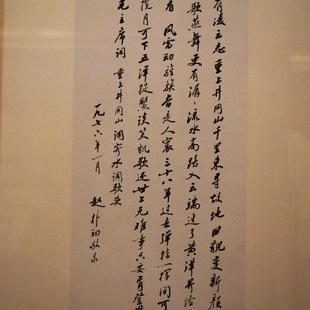 有凌云志 重上井冈山千里来寻故地 旧貌變新颜
歌燕舞更有潺潺流水高路入云端过了黄洋界险
看 風雷动旌旗奋是人寰三十八年过去弹指一挥间可
揽月可下五洋捉鳖谈笑凯歌还世上无难事只要肯登
毛主席词 重上井冈山 调寄水调歌头
一九七六年一月 赵朴初敬录